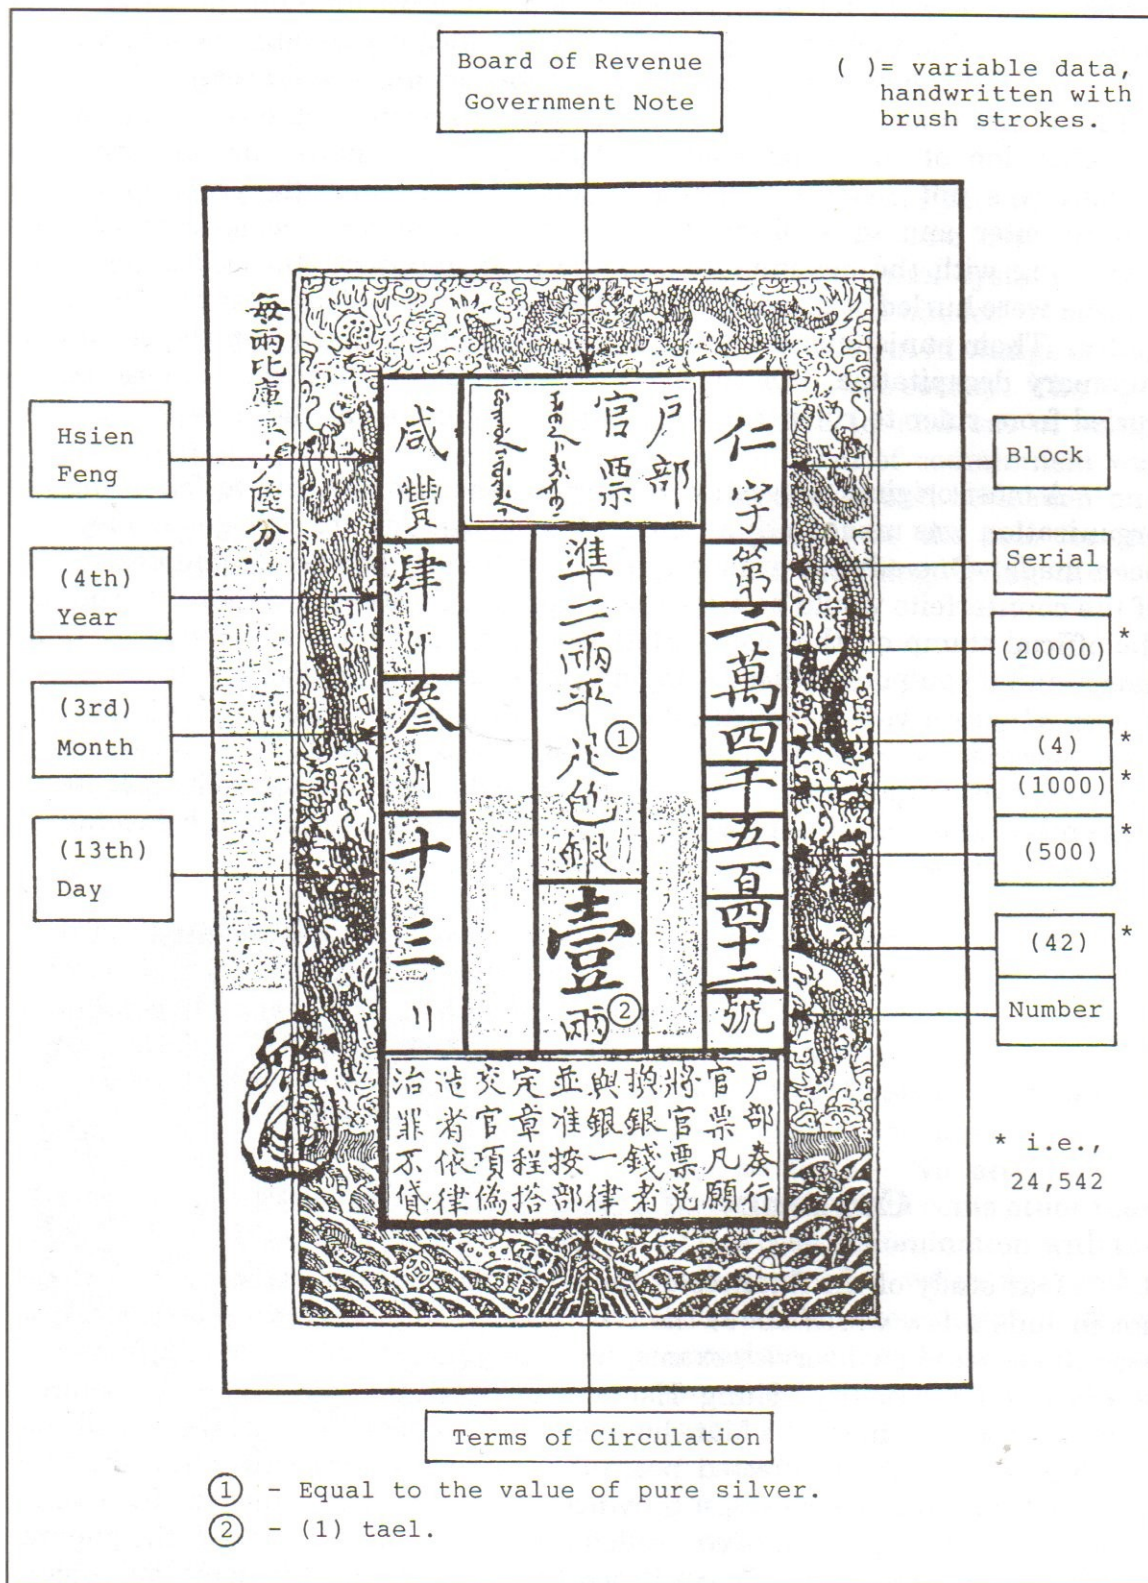 Board of Revenue
Government Note
( )= variable data,
handwritten with
brush strokes.
Hsien
Feng
(4th)
Year
(3rd)
Month
(13th)
Day
Block
Serial
(20000) *
(4) *
(1000) *
(500) *
(42) *
Number
* i.e.,
24,542
戶部
官票
仁字第二萬四千五百四十二號
準二兩平足色銀 ①
壹兩 ②
咸豐肆
叁
十三
每兩比庫平少陸分
戶部奏行
官票凡願
將官票兌
換銀錢者
與銀一律
並准按部
定章程搭
交官項偽
造者依律
治罪不貸
Terms of Circulation
① - Equal to the value of pure silver.
② - (1) tael.